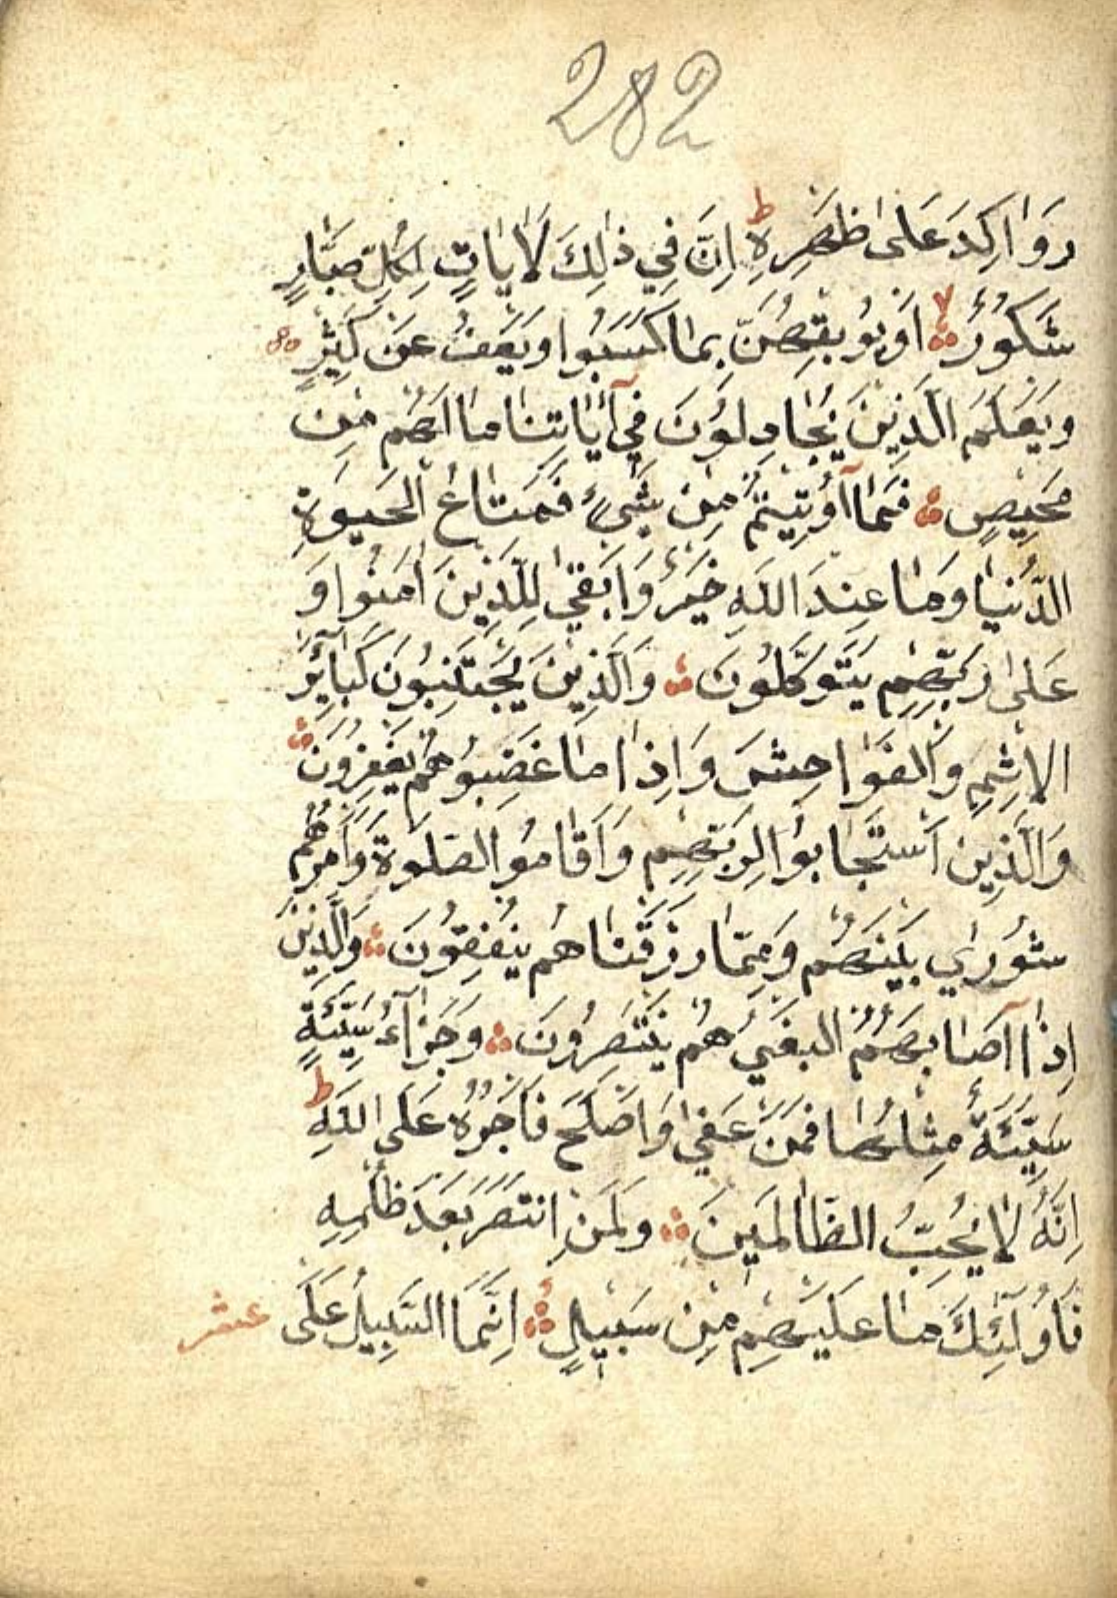 282
رَوَاكِدَ عَلٰى ظَهْرِهِ ط اِنَّ فِي ذٰلِكَ لَاٰيَاتٍ لِكُلِّ صَبَّارٍ
شَكُورٍ لا اَوْ يُوبِقْهُنَّ بِمَا كَسَبُوا وَيَعْفُ عَنْ كَثِيرٍ
وَيَعْلَمَ الَّذِينَ يُجَادِلُونَ فِي آيَاتِنَا مَا لَهُمْ مِنْ
مَحِيصٍ فَمَا أُوتِيتُمْ مِنْ شَيْءٍ فَمَتَاعُ الْحَيٰوةِ
الدُّنْيَا وَمَا عِنْدَ اللّٰهِ خَيْرٌ وَاَبْقٰى لِلَّذِينَ اٰمَنُوا وَ
عَلٰى رَبِّهِمْ يَتَوَكَّلُونَ وَالَّذِينَ يَجْتَنِبُونَ كَبَآئِرَ
الْاِثْمِ وَالْفَوَاحِشَ وَاِذَا مَا غَضِبُوا هُمْ يَغْفِرُونَ
وَالَّذِينَ اسْتَجَابُوا لِرَبِّهِمْ وَاَقَامُوا الصَّلٰوةَ وَاَمْرُهُمْ
شُورٰي بَيْنَهُمْ وَمِمَّا رَزَقْنَاهُمْ يُنْفِقُونَ وَالَّذِينَ
اِذَا اَصَابَهُمُ الْبَغْيُ هُمْ يَنْتَصِرُونَ وَجَزَآءُ سَيِّئَةٍ
سَيِّئَةٌ مِثْلُهَا فَمَنْ عَفٰى وَاَصْلَحَ فَاَجْرُهُ عَلَى اللّٰهِ ط
اِنَّهُ لَا يُحِبُّ الظَّالِمِينَ وَلَمَنِ انْتَصَرَ بَعْدَ ظُلْمِهِ
فَاُولٰٓئِكَ مَا عَلَيْهِمْ مِنْ سَبِيلٍ اِنَّمَا السَّبِيلُ عَلَى عشر